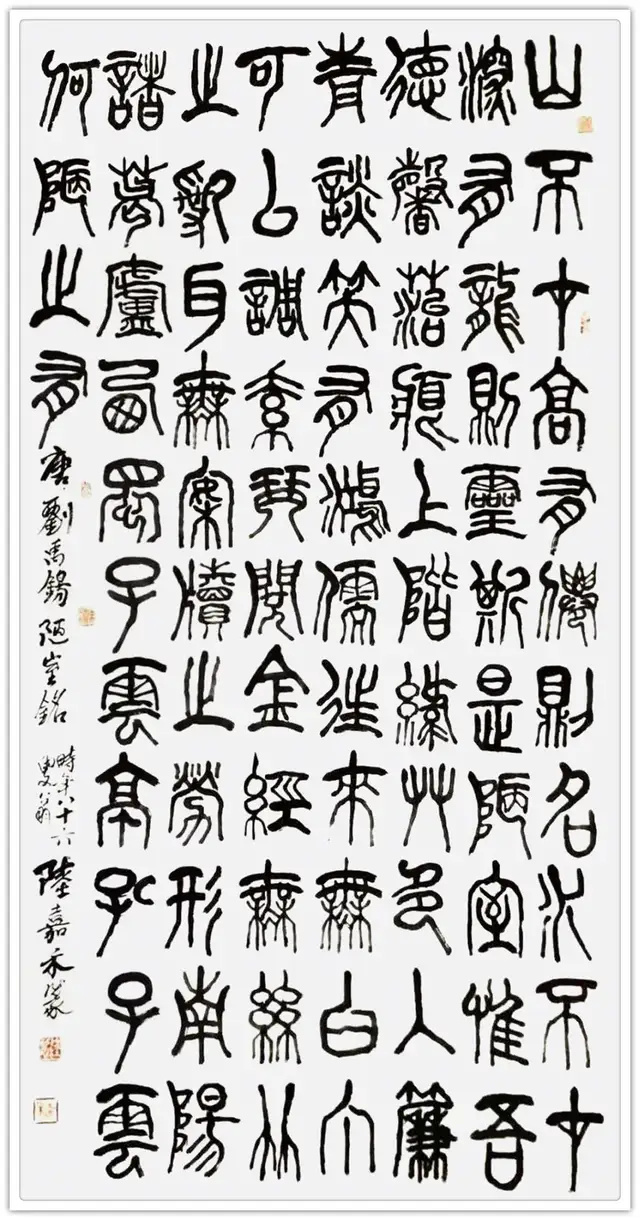 山不在高有僊則名水不在
深有龍則靈斯是陋室惟吾
德馨菭痕上階綠艸色入簾
青談笑有鴻儒往來無白丁
可以調素琴閱金經無絲竹
之亂耳無案牘之勞形南陽
諸葛廬西蜀子雲亭孔子雲
何陋之有
唐劉禹錫陋室銘
時年八十六
叟翁
陸嘉禾篆